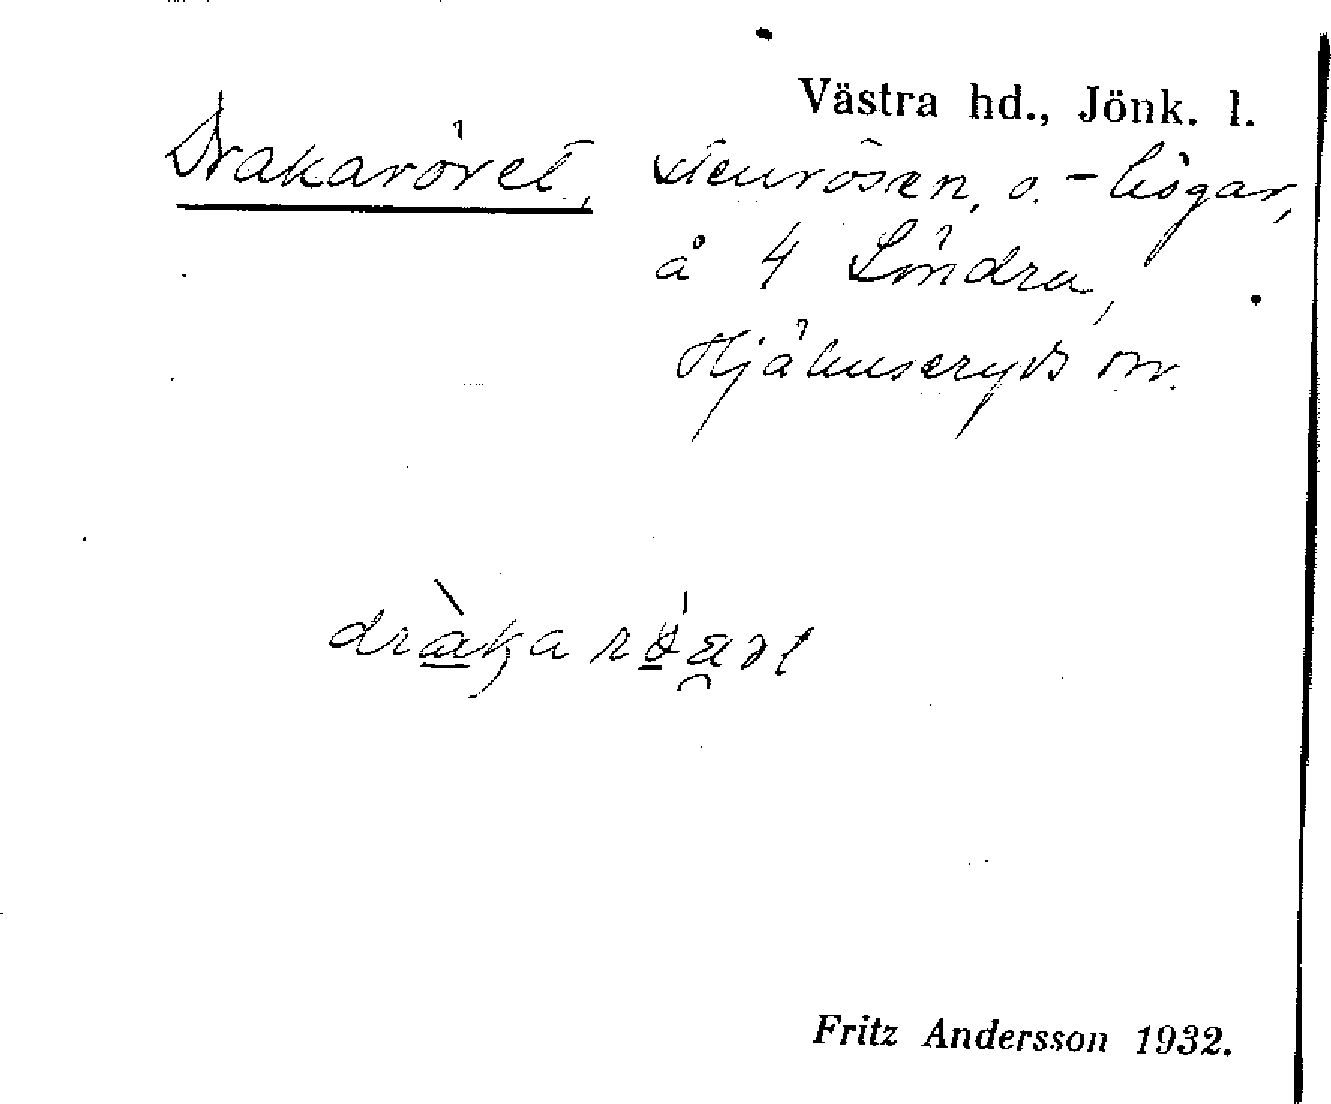 Västra hd., Jönk. l.
Drakaröret, Stenrösen, o. - högar,
å 4 Söndra,
Hjälmseryds sn.
Fritz Andersson 1932.